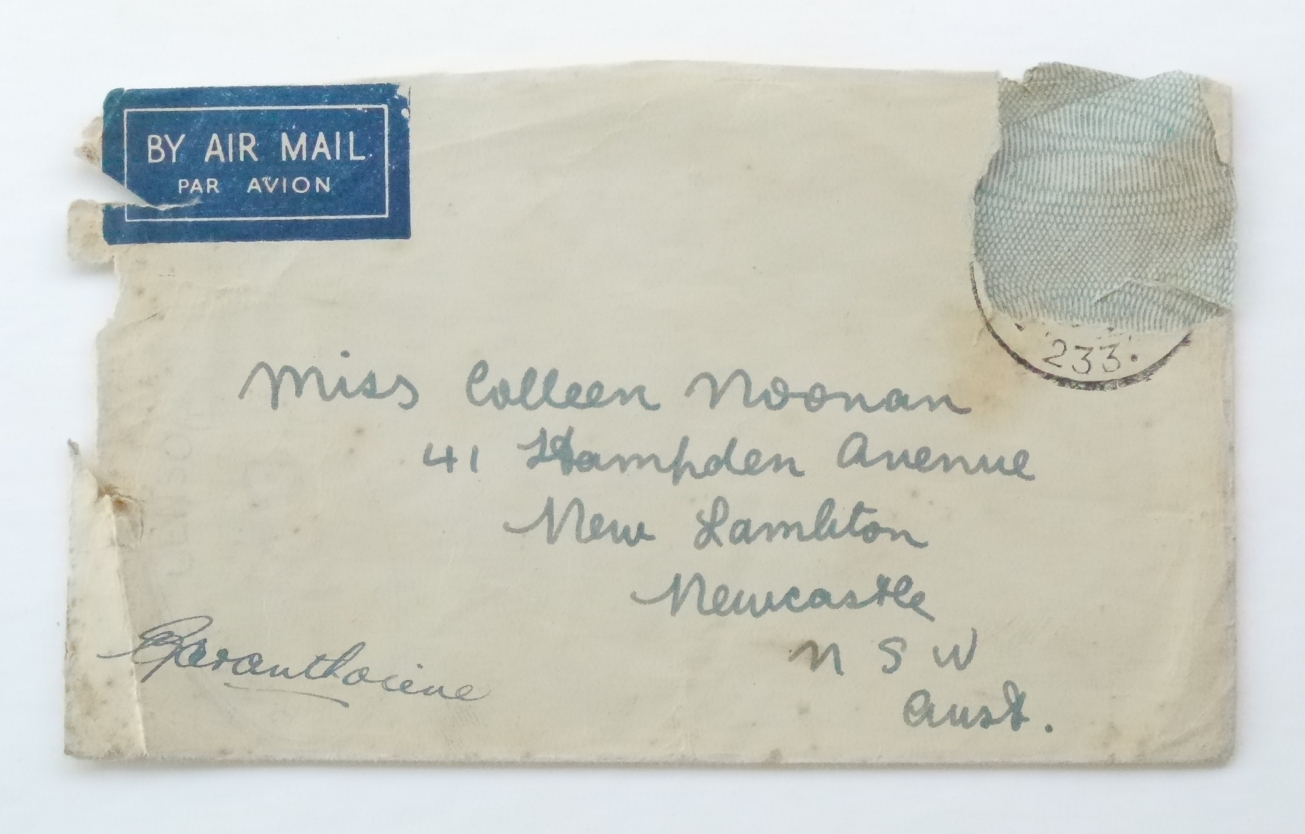 BY AIR MAIL
PAR AVION
233.
Miss Colleen Noonan
41 Hampden Avenue
New Lambton
Newcastle
N S W
Aust.